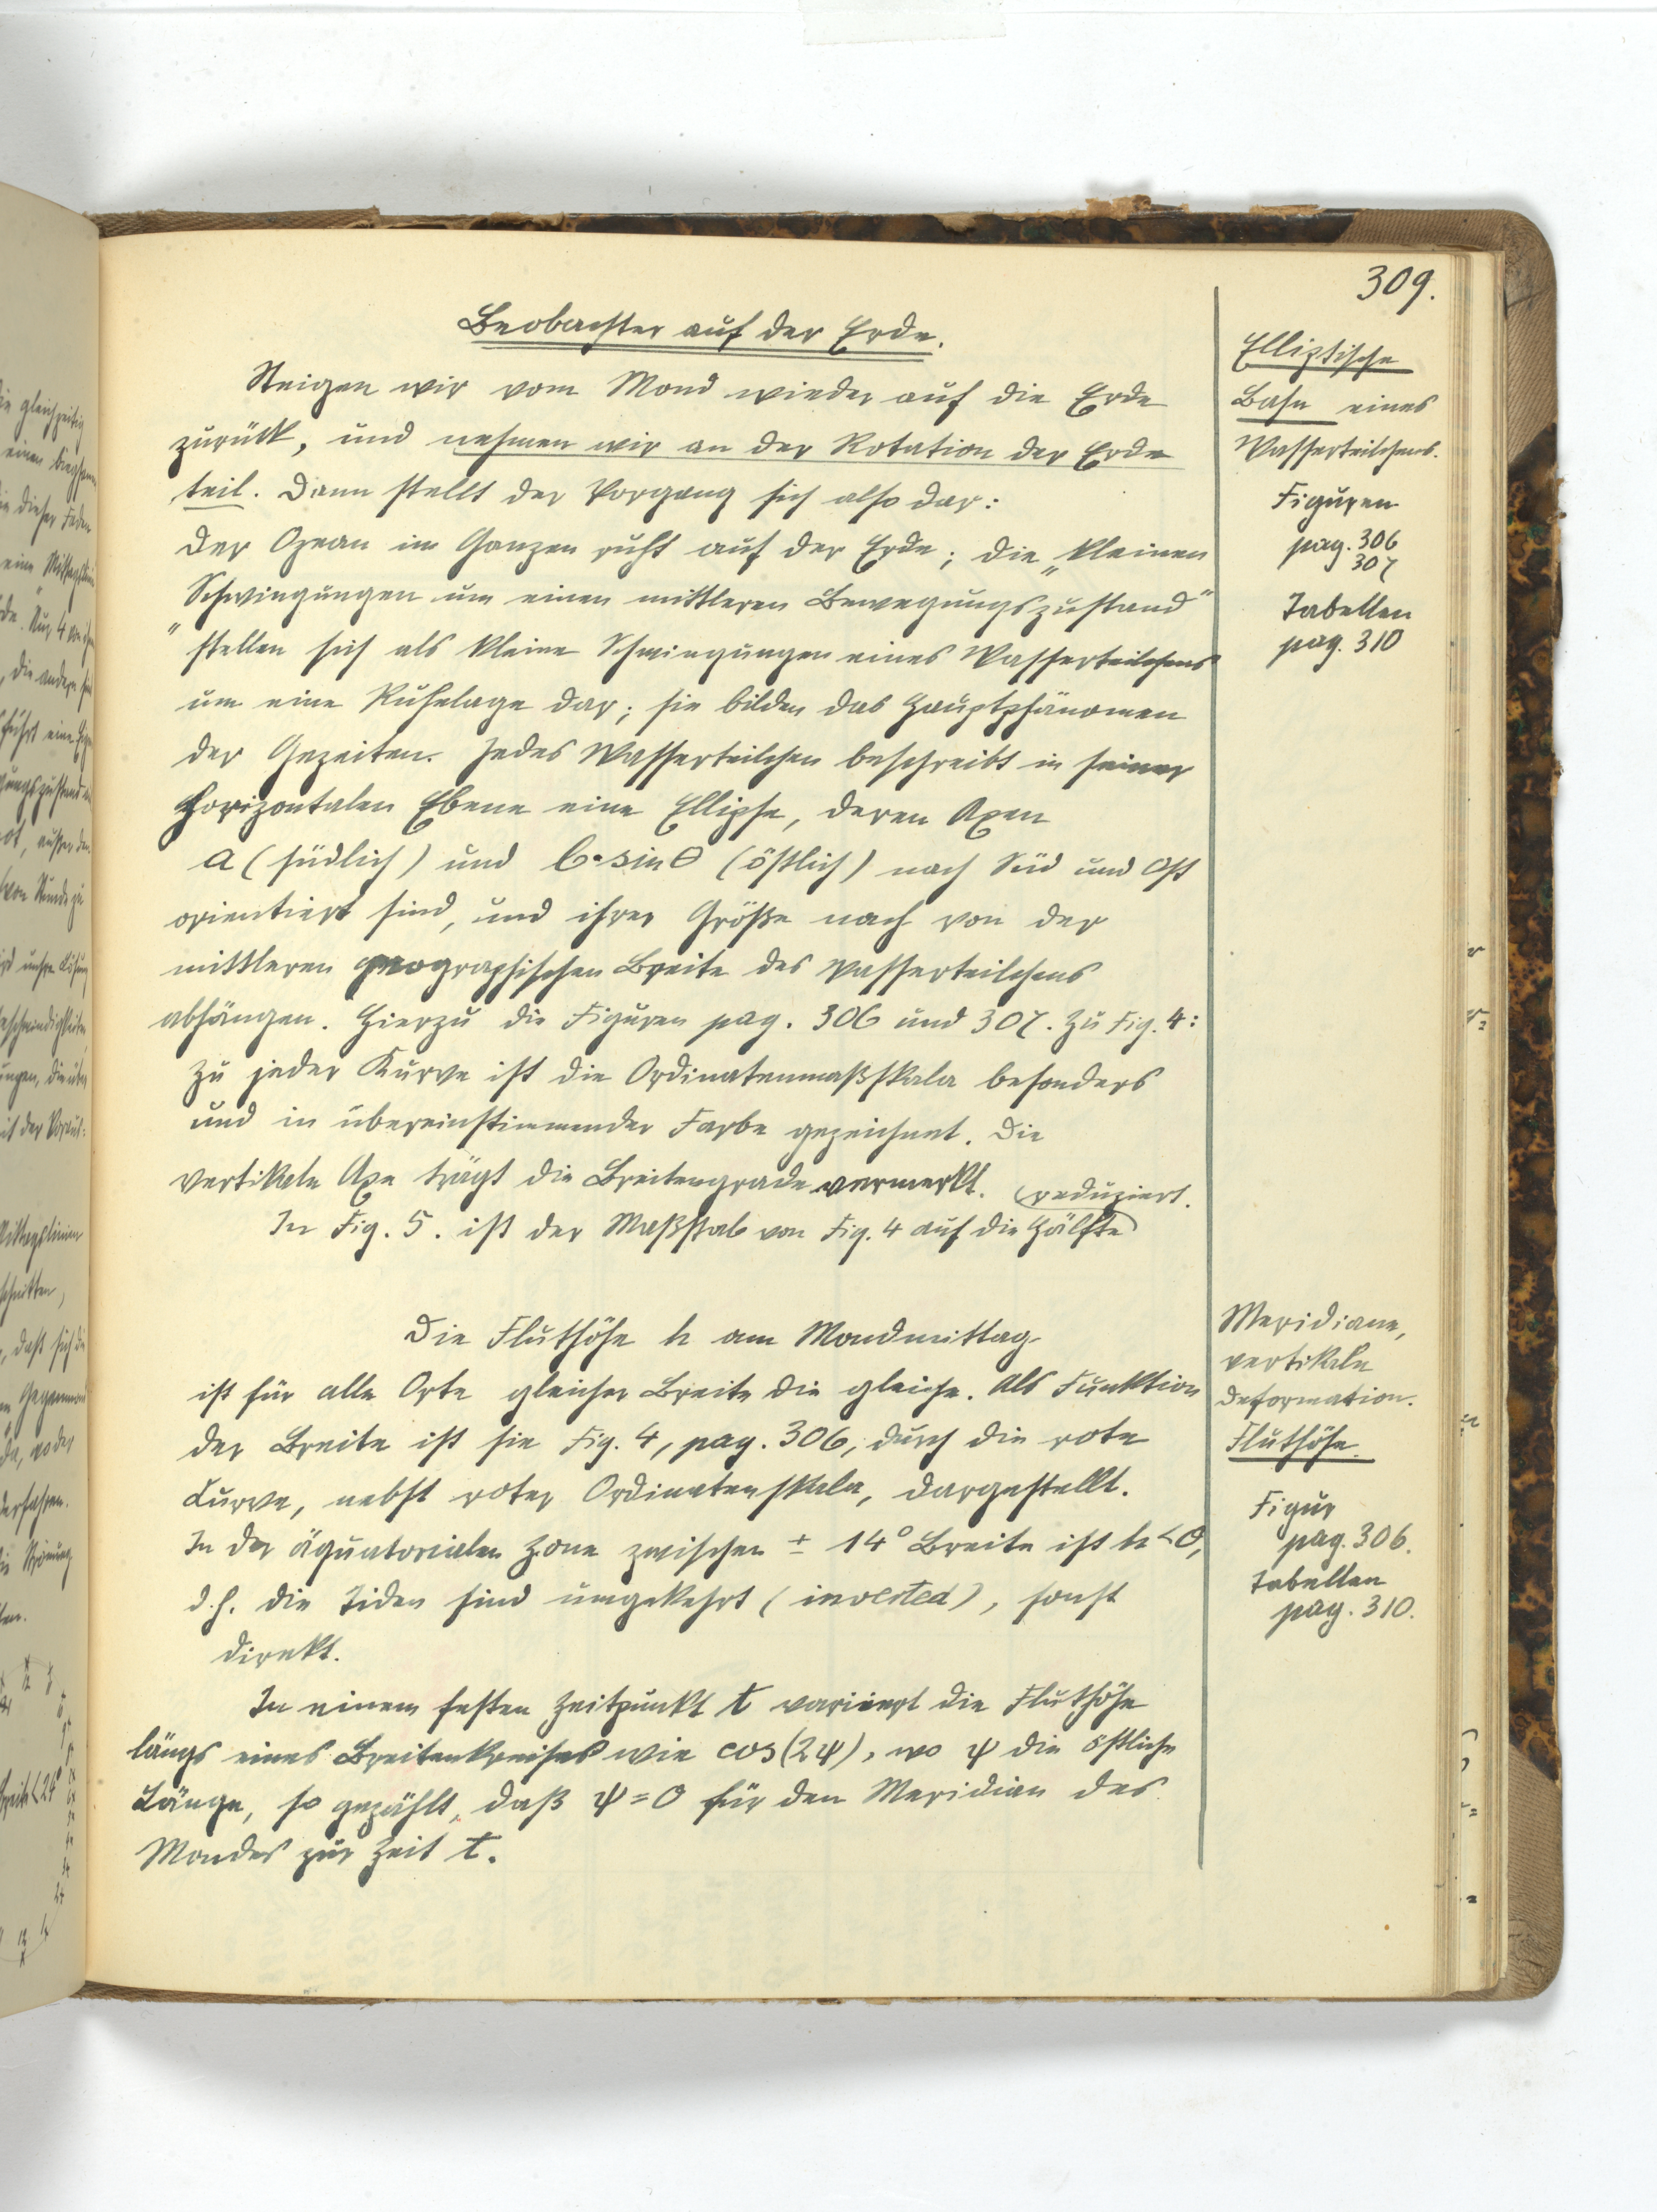 309.
Beobachter auf der Erde.
Steigen wir vom Mond wieder auf die Erde
zurück, und nehmen wir an der Rotation der Erde
teil. Dann stellt der Vorgang sich also dar:
Der Ozean im Ganzen ruht auf der Erde; die „kleinen
Schwingungen um einen mittleren Bewegungszustand"
" stellen sich als kleine Schwingungen eines Wasserteilchens
um eine Ruhelage dar; sie bilden das Hauptphänomen
der Gezeiten. Jedes Wasserteilchen beschreibt in seiner
horizontalen Ebene eine Ellipse, deren Axen
a (südlich) und b·sin θ (östlich) nach Süd und Ost
orientiert sind, und ihrer Größe nach von der
mittleren geographischen Breite des Wasserteilchens
abhängen. Hierzu die Figuren pag. 306 und 307. Zu Fig. 4:
Zu jeder Kurve ist die Ordinatenmaßskala besonders
und in übereinstimmender Farbe gezeichnet. Die
vertikale Axe trägt die Breitengrade vermerkt.
In Fig. 5. ist der Maßstab von Fig. 4 auf die Hälfte
reduziert.
Die Fluthöhe h am Mondmittag
ist für alle Orte gleicher Breite die gleiche. Als Funktion
der Breite ist sie Fig. 4, pag. 306, durch die rote
Curve, nebst roter Ordinatenskala, dargestellt.
In der äquatorialen Zone zwischen ± 14° Breite ist h < 0,
d.h. die Tiden sind umgekehrt (inverted), sonst
direkt.
In einem festen Zeitpunkt t variiert die Fluthöhe
längs eines Breitenkreises wie cos(2ψ), wo ψ die östliche
Länge, so gezählt, daß ψ = 0 für den Meridian des
Mondes zur Zeit t.
Elliptische
Bahn eines
Wasserteilchens.
Figuren
pag. 306
307
Tabellen
pag. 310
Meridiane,
vertikale
Deformation.
Fluthöhe.
Figur
pag. 306.
Tabellen
pag. 310.